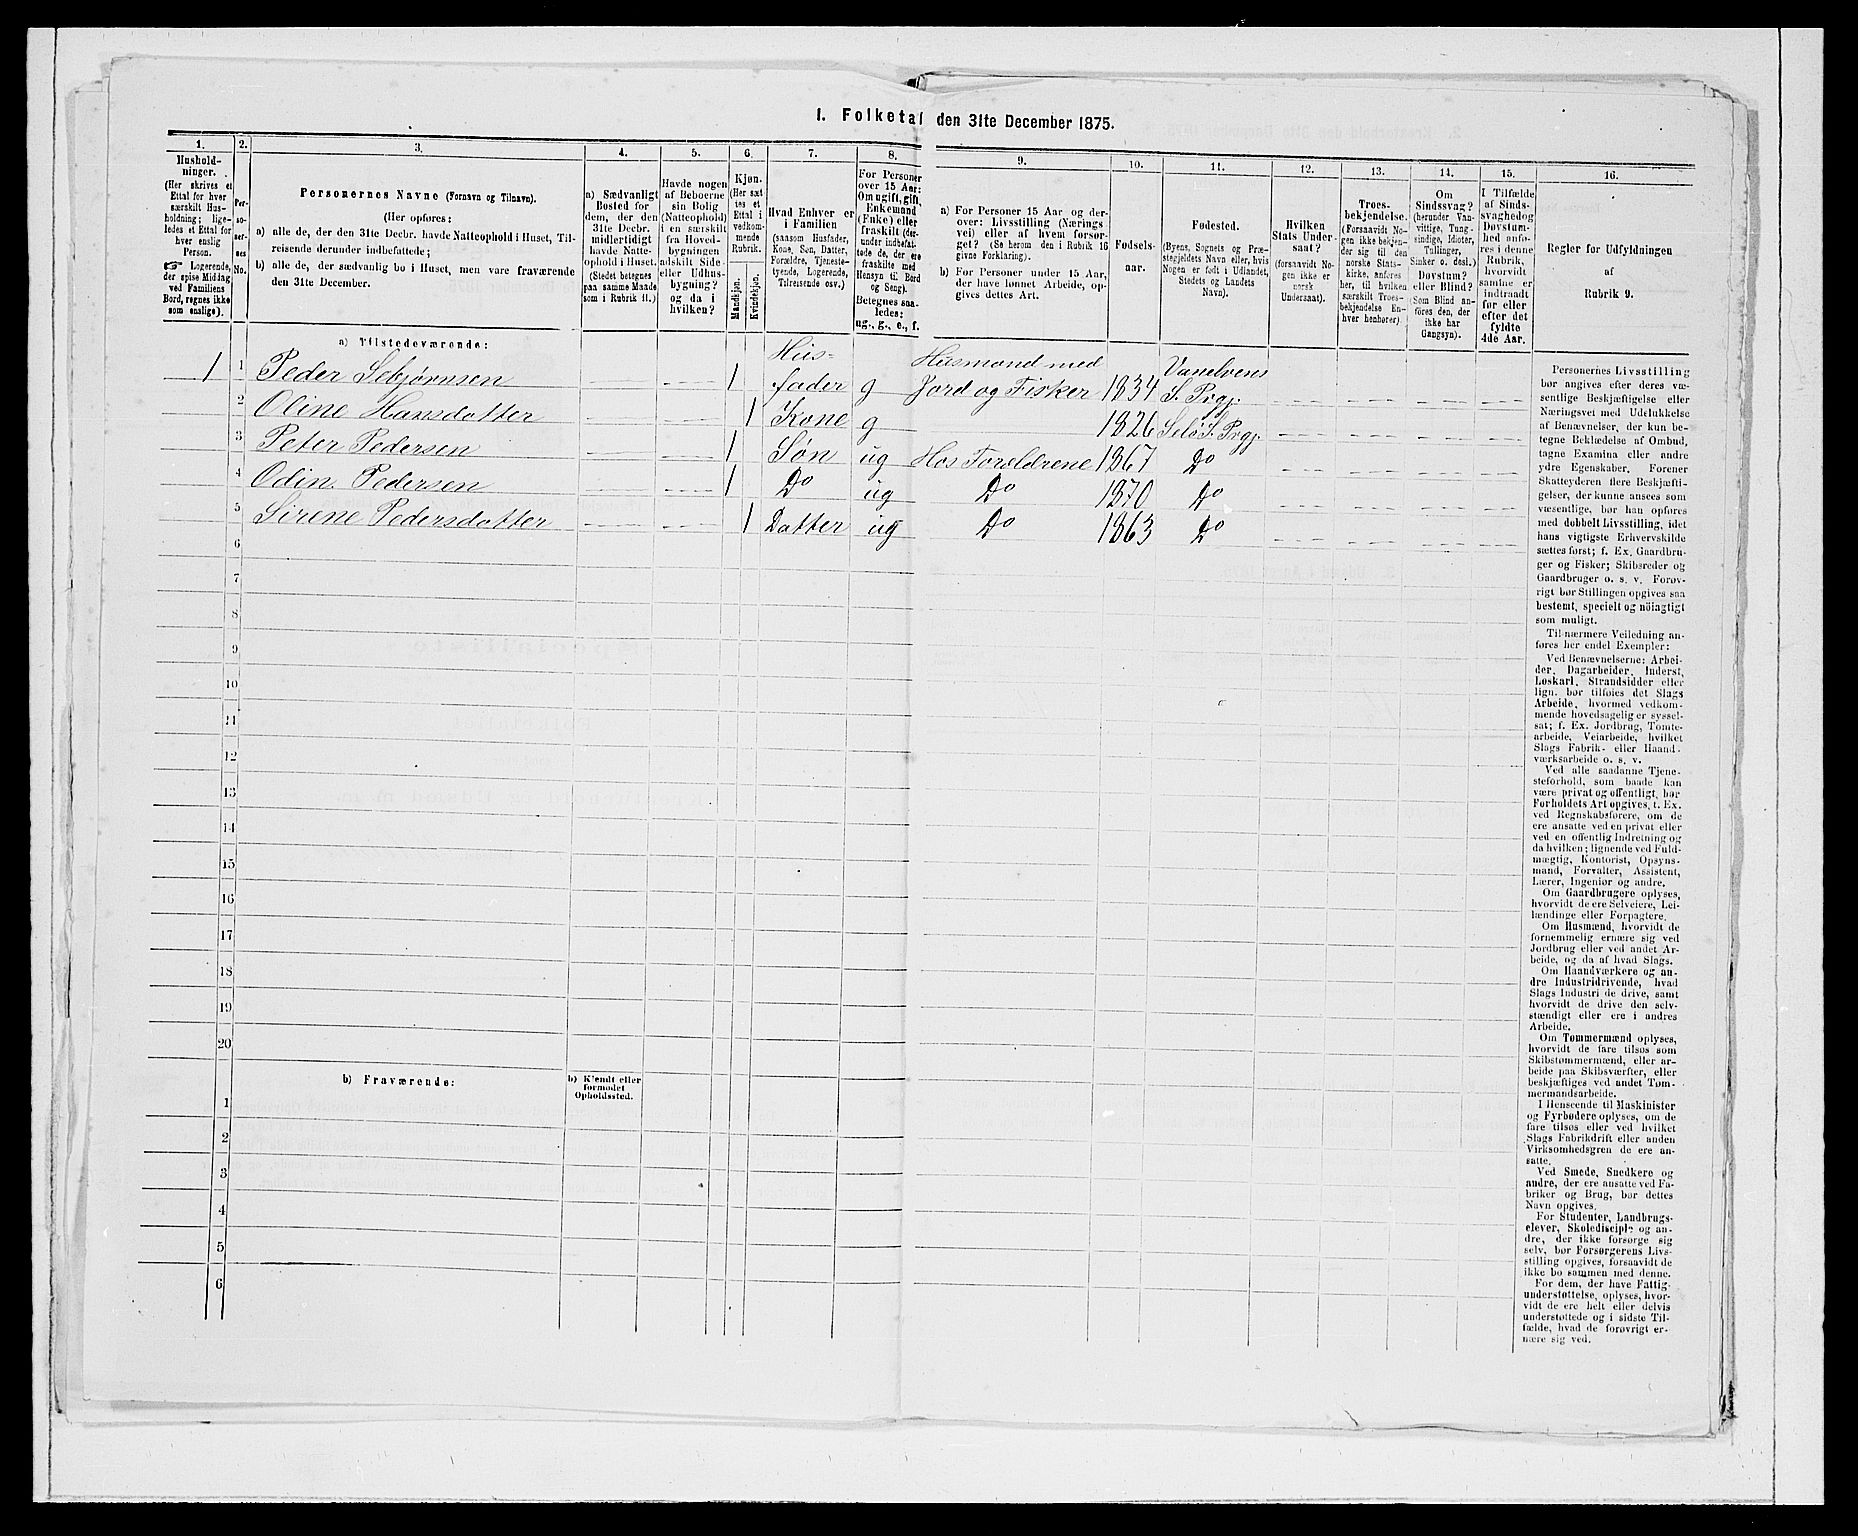 I. Folketal den 31te December 1875.
1.
Hushold-
ninger.
(Her skrives et
Ettal for hver
særskilt Hus-
holdning; lige-
ledes et Ettal for
hver enslig
Person.
☞ Logerende,
der spise Middag
ved Familiens
Bord, regnes ikke
som enslige).
2.
Per-
so-
ner-
nes
No.
3.
Personernes Navne (Fornavn og Tilnavn).
(Her opføres:
a) alle de, der den 31te Decbr. havde Natteophold i Huset, Til-
reisende derunder indbefattede;
b) alle de, der sædvanlig bo i Huset, men vare fraværende
den 31te December.
4.
a) Sædvanligt
Bosted for
dem, der den
31te Decbr.
midlertidigt
havde Natte-
ophold i Huset.
(Stedet betegnes
paa samme Maade
som i Rubrik 11.)
5.
Havde nogen
af Beboerne
sin Bolig
(Natteophold)
i en særskilt
fra Hoved-
bygningen
adskilt Side-
eller Udhus-
bygning?
og da i
hvilken?
6.
Kjøn.
(Her sæt
tes et
Ettal i
vedkom-
mende
Rubrik.
Mandkjøn.
Kvindekjøn.
7.
Hvad Enhver er
i Familien
(saasom Husfader,
Kone, Søn, Datter,
Forældre, Tjeneste-
tyende, Logerende,
Tilreisende osv.)
8.
For Personer
over 15 Aar:
Om ugift, gift,
Enkemand
(Enke) eller
fraskilt (der-
under indbefat-
tede de, der ere
fraskilte med
Hensyn til Bord
og Seng).
Betegnes saa-
ledes:
ug., g., e., f.
9.
a) For Personer 15 Aar og der-
over: Livsstilling (Nærings
vei) eller af hvem forsør-
get? (Se herom den i Rubrik 16
givne Forklaring).
b) For Personer under 15 Aar,
der have lønnet Arbeide, op-
gives dettes Art.
10.
Fødsels-
aar.
11.
Fødested.
(Byens, Sognets og Præ-
stegjeldets Navn eller, hvis
Nogen er født i Udlandet,
Stedets og Landets
Navn).
12.
Hvilken
Stats Under-
saat?
(forsaavidt No-
gen ikke er
norsk
Undersaat).
13.
Troes-
bekjendelse.
(Forsaavidt No-
gen ikke bekjen-
der sig til den
norske Stats-
kirke, anføres
her, til hvilken
særskilt Troes-
bekjendelse En-
hver henhører).
14.
Om
Sindssvag?
(herunder Van-
vittige, Tung-
sindige, Idioter,
Tullinger,
Sinker o. desl.)
Døvstum?
eller Blind?
(Som Blind an-
føres den, der
ikke har
Gangsyn).
15.
I Tilfælde
af Sinds-
svaghed og
Døvstum-
hed anfø-
res i denne
Rubrik,
hvorvidt
samme er
indtraadt
før eller
efter det
fyldte
4de Aar.
16.
Regler for Udfyldningen
af
Rubrik 9.
a) Tilstedeværende:
1 1 Peder Sebjørnsen 1 Hus- fader g Husmand med Jord og Fisker 1834 Vanelvens S. Prgj.
2 Oline Hansdatter 1 Kone g 1826 Selø S. Prgj.
3 Peter Pedersen 1 Søn ug Hos Forældrene 1867 Do
4 Odin Pedersen 1 Do ug Do 1870 Do
5 Sirene Pedersdatter 1 Datter ug Do 1863 Do
6
7
8
9
10
11
12
13
14
15
16
17
18
19
20
b) Fraværende:
b) Kjendt eller
formodet
Opholdssted.
1
2
3
4
5
6
Personernes Livsstilling
bør angives efter deres væ-
sentlige Beskjæftigelse eller
Næringsvei med Udelukkelse
af Benævnelser, der kun be-
tegne Beklædelse af Ombud,
tagne Examina eller andre
ydre Egenskaber. Forener
Skatteyderen flere Beskjæfti-
gelser, der kunne ansees som
væsentlige, bør han opføres
med dobbelt Livsstilling, idet
hans vigtigste Erhvervskilde
sættes først; f. Ex. Gaardbru-
ger og Fisker; Skibsreder og
Gaardbruger o. s. v. Forøv-
rigt bør Stillingen opgives saa
bestemt, specielt og nöiagtigt
som muligt.
Til nærmere Veiledning an-
føres her endel Exempler:
Ved Benævnelserne: Arbei-
der, Dagarbeider, Inderst,
Løskarl, Strandsidder eller
lign. bør tilføies det Slags
Arbeide, hvormed vedkom-
mende hovedsagelig er syssel-
sat; f. Ex. Jordbrug, Tomte-
arbeide, Veiarbeide, hvilket
Slags Fabrik- eller Haand-
værksarbeide o. s. v.
Ved alle saadanne Tjene-
steforhold, som baade kan
være privat og offentligt, bør
Forholdets Art opgives, t. Ex.
ved Regnskabsførere, om de
ere ansatte ved en privat eller
ved en offentlig Indretning og
da hvilken; lignende ved Fuld-
mægtig, Kontorist, Opsyns-
mand, Forvalter, Assistent,
Lærer, Ingeniør og andre.
Om Gaardbrugere oplyses,
hvorvidt de ere Selveiere, Lei-
lændinge eller Forpagtere.
Om Husmænd, hvorvidt de
fornemmelig ernære sig ved
Jordbrug eller ved andet Ar-
beide, og da af hvad Slags.
Om Haandværkere og an-
dre Industridrivende, hvad
Slags Industri de drive, samt
hvorvidt de drive den selv-
stændigt eller ere i andres
Arbeide.
Om Tømmermænd oplyses,
hvorvidt de fare tilsøs som
Skibstømmermænd, eller ar-
beide paa Skibsværfter, eller
beskjæftiges ved andet Tøm-
mermandsarbeide.
I Henseende til Maskinister
og Fyrbødere oplyses, om de
fare tilsøs eller ved hvilket
Slags Fabrikdrift eller anden
Virksomhedsgren de ere an-
satte.
Ved Smede, Snedkere og
andre, der ere ansatte ved Fa-
briker og Brug, bør dettes
Navn opgives.
For Studenter, Landbrugs-
elever, Skoledisciple og an-
dre, der ikke forsørge sig
selv, bør Forsørgerens Livs-
stilling opgives, forsaavidt de
ikke bo sammen med denne.
For dem, der have Fattig-
understøttelse, oplyses, hvor-
vidt de ere helt eller delvis
understøttede og i sidste Til-
fælde, hvad de forøvrigt er-
nære sig ved.